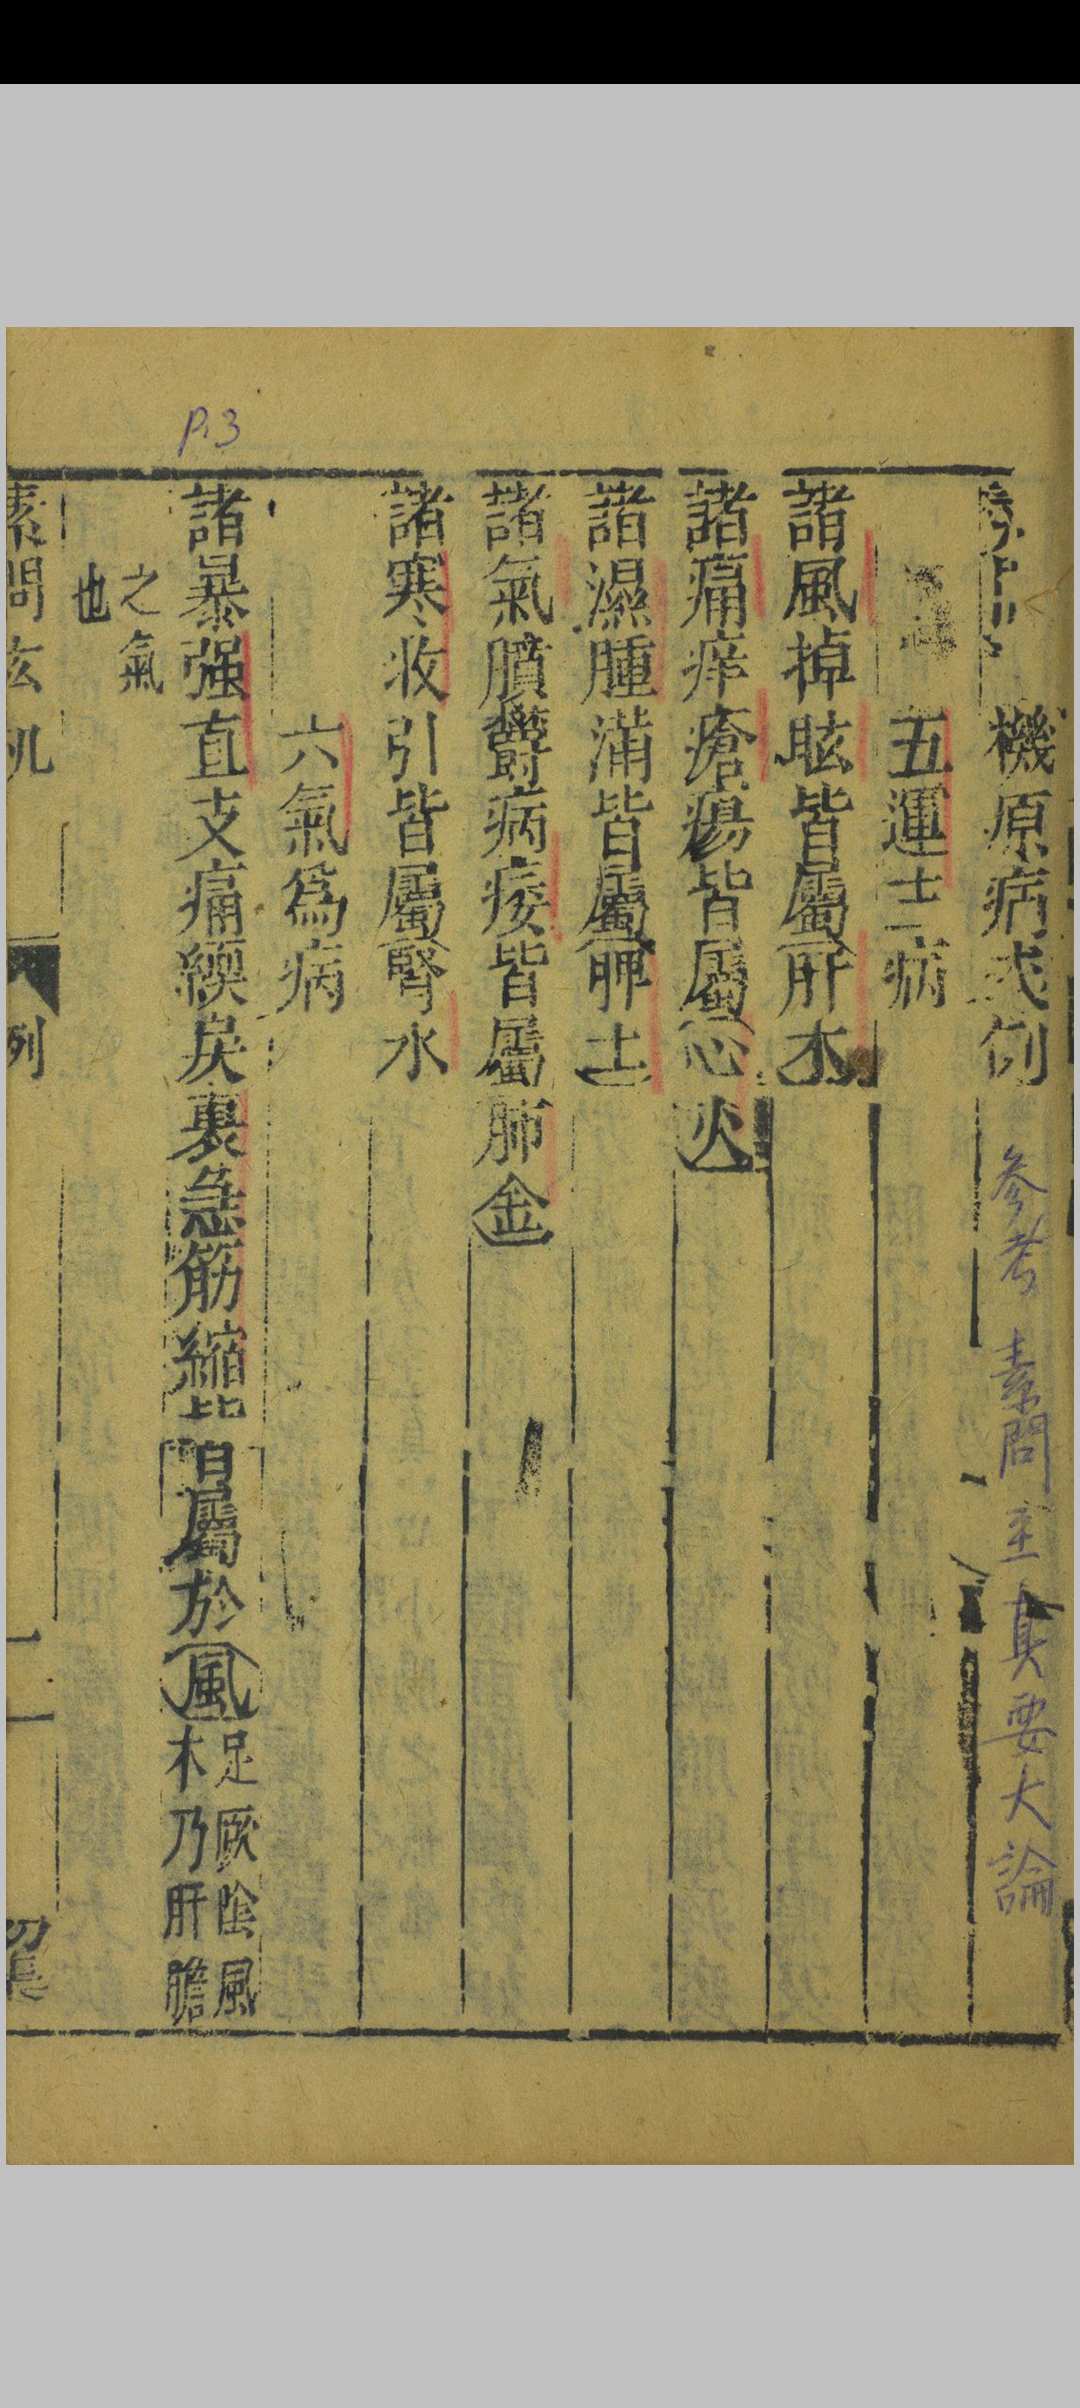 p.3
機原病式例
參考 素問 至真要大論
五運主病
諸風掉眩皆屬肝木
諸痛痒瘡瘍皆屬心火
諸濕腫滿皆屬脾土
諸氣膹鬱病痿皆屬肺金
諸寒收引皆屬腎水
六氣為病
諸暴强直支痛緛戾裏急筋縮皆屬於風
足厥陰風
木乃肝膽
之氣
也
素問玄机
例
二